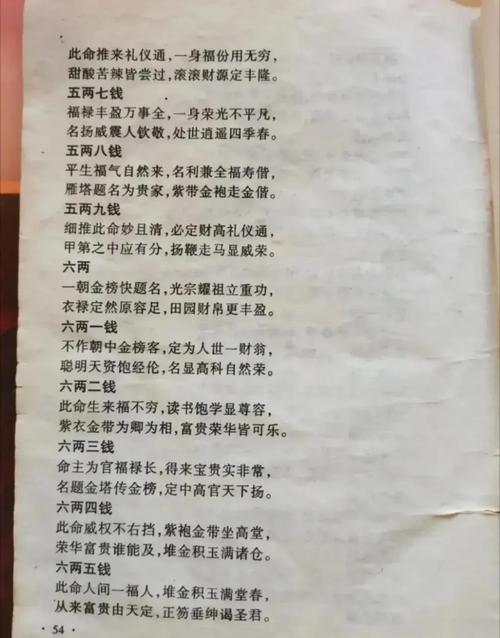 此命推来礼仪通，一身福份用无穷，
甜酸苦辣皆尝过，滚滚财源定丰隆。
五两七钱
福禄丰盈万事全，一身荣光不平凡，
名扬威震人钦敬，处世逍遥四季春。
五两八钱
平生福气自然来，名利兼全福寿偕，
雁塔题名为贵家，紫带金袍走金偕。
五两九钱
细推此命妙且清，必定财高礼仪通，
甲第之中应有分，扬鞭走马显威荣。
六两
一朝金榜快题名，光宗耀祖立重功，
衣禄定然原容足，田园财帛更丰盈。
六两一钱
不作朝中金榜客，定为人世一财翁，
聪明天资饱经伦，名显高科自然荣。
六两二钱
此命生来福不穷，读书饱学显尊容，
紫衣金带为卿为相，富贵荣华皆可乐。
六两三钱
命主为官福禄长，得来宝贵实非常，
名题金塔传金榜，定中高官天下扬。
六两四钱
此命威权不右挡，紫袍金带坐高堂，
荣华富贵谁能及，堆金积玉满诸仓。
六两五钱
此命人间一福人，堆金积玉满堂春，
从来富贵由天定，正笏垂绅谒圣君。
·54·